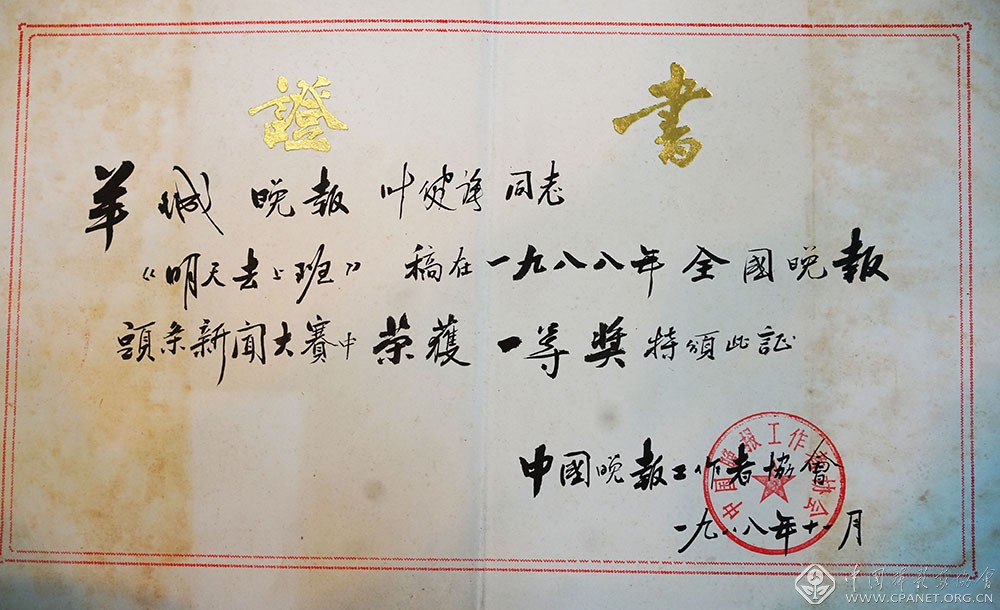 證書
羊城晚報 叶健强同志
《明天去上班》稿在一九八八年全國晚報
頭条新闻大赛中荣獲一等奬特頒此証
中國晚報工作者協會
中国晚报工作者协会
一九八八年十一月
WWW.CPANET.ORG.CN